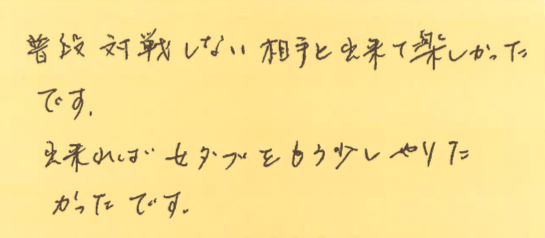 普段対戦しない相手と出来て楽しかった
です.
出来れば女ダブをもう少しやりた
かったです.